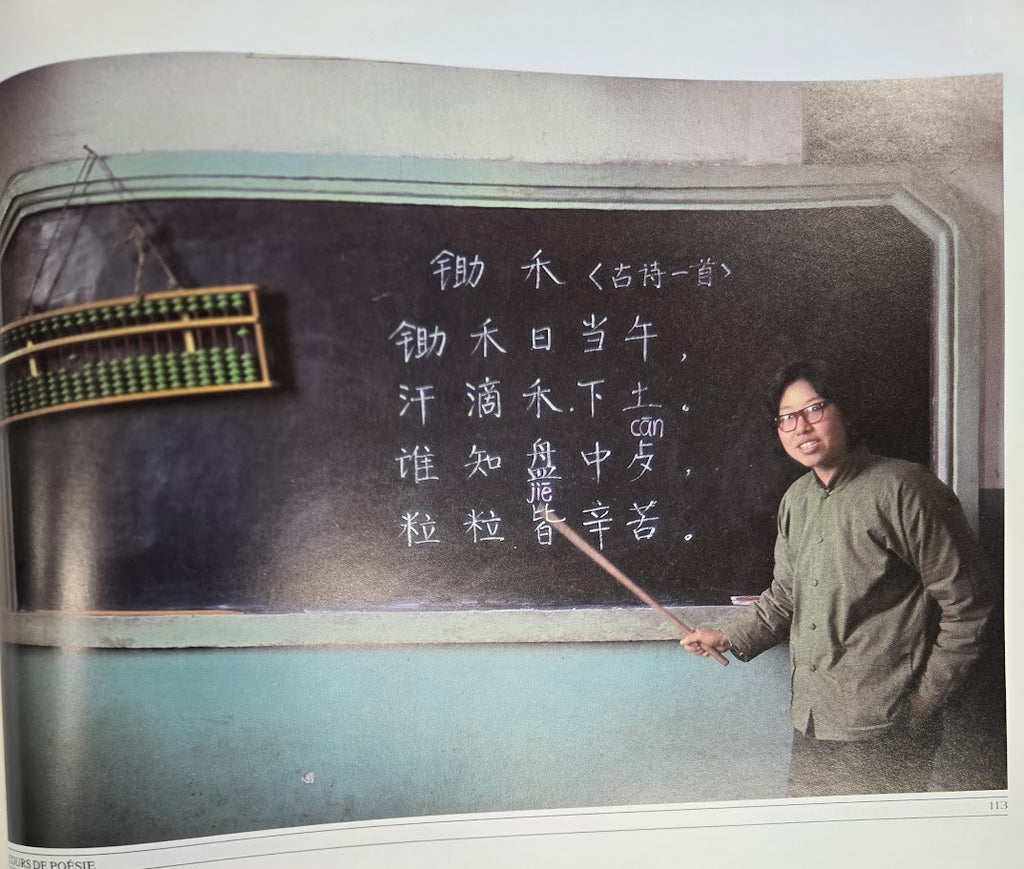 锄禾〈古诗一首〉
锄禾日当午，
汗滴禾下土。
cān
谁知盘中歺，
jiē
粒粒皆辛苦。
113
COURS DE POÉSIE